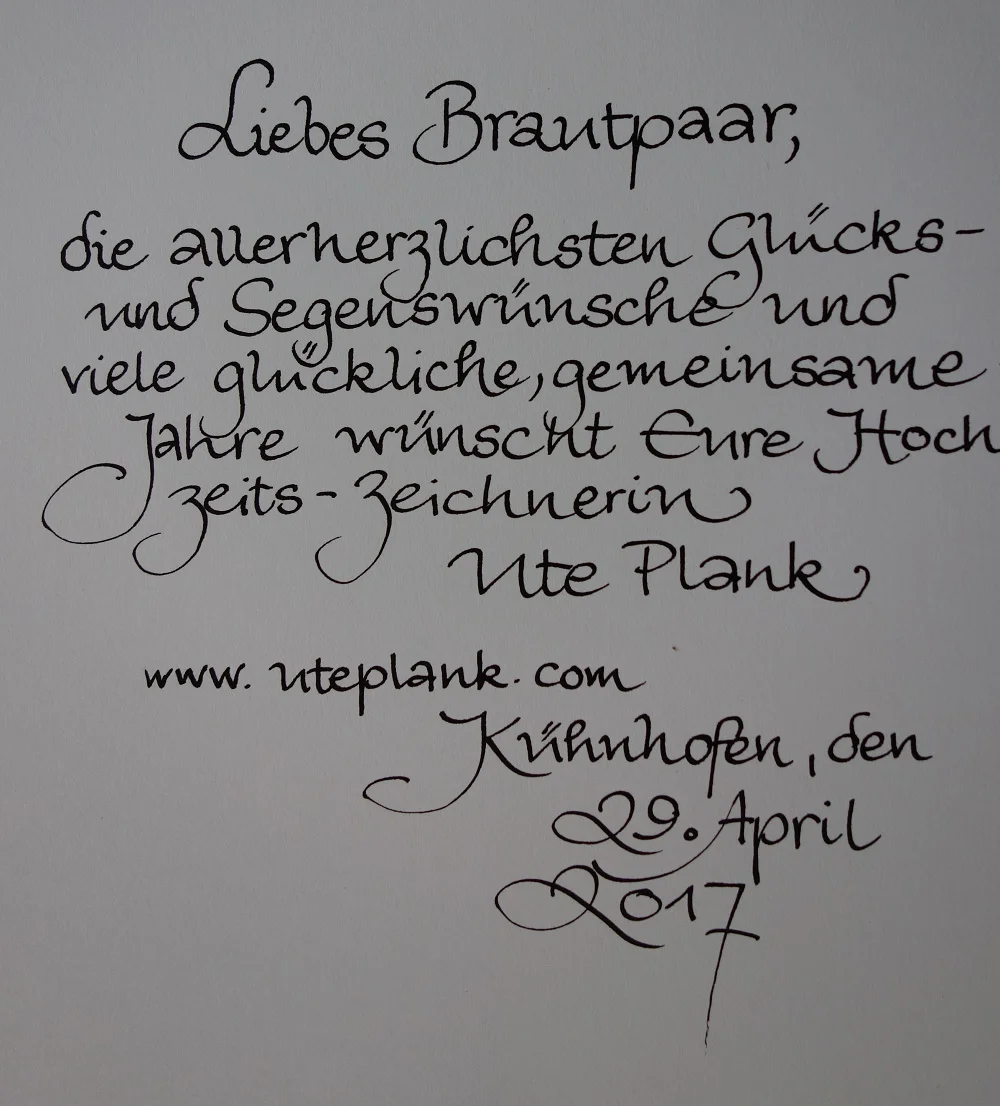 Liebes Brautpaar,
die allerherzlichsten Glücks-
und Segenswünsche und
viele glückliche, gemeinsame
Jahre wünscht Eure Hoch
zeits-Zeichnerin
Ute Plank
www.uteplank.com
Kühnhofen, den
29. April
2017